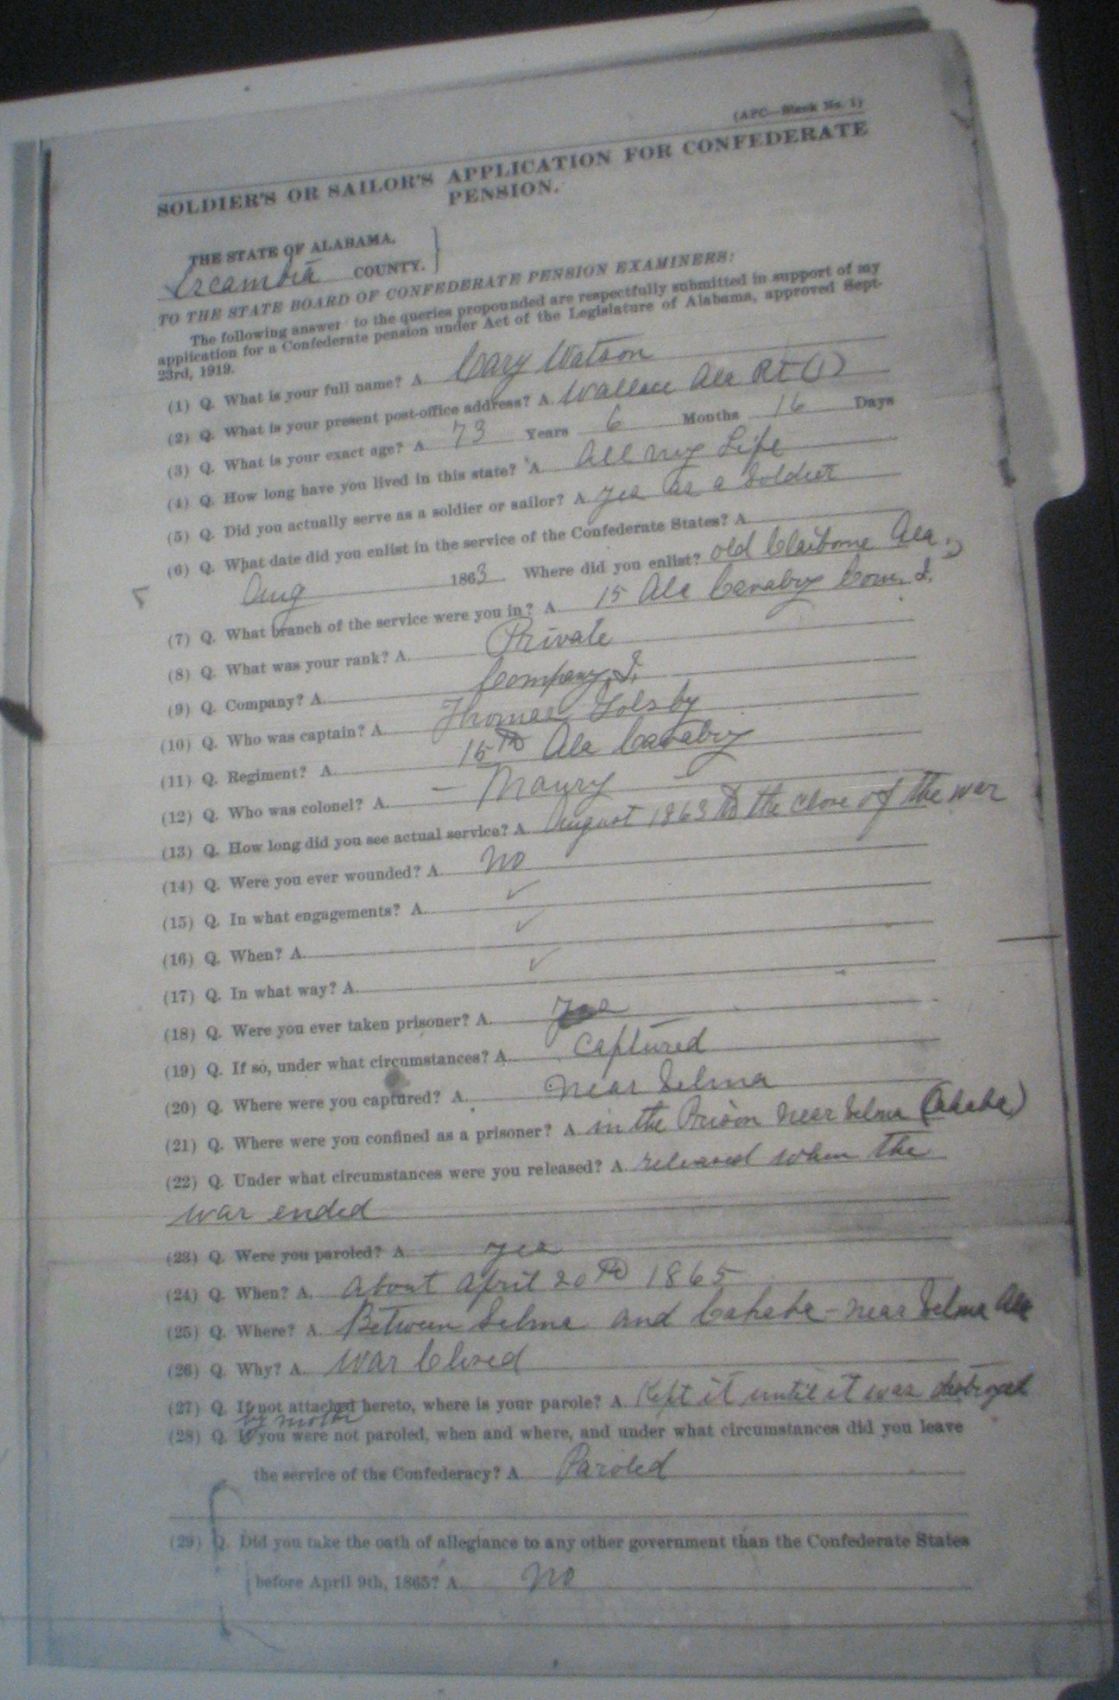 (APC—Blank No. 1)
SOLDIER'S OR SAILOR'S APPLICATION FOR CONFEDERATE
PENSION.
THE STATE OF ALABAMA,
Escambia COUNTY.
TO THE STATE BOARD OF CONFEDERATE PENSION EXAMINERS:
The following answer to the queries propounded are respectfully submitted in support of my
application for a Confederate pension under Act of the Legislature of Alabama, approved Sept-
23rd, 1919.
(1) Q. What is your full name? A. Cary Watson
(2) Q. What is your present post-office address? A. Wallace Ala Rt (1)
(3) Q. What is your exact age? A. 73 Years 6 Months 16 Days
(4) Q. How long have you lived in this state? A. All my Life
(5) Q. Did you actually serve as a soldier or sailor? A. yes as a Soldier
(6) Q. What date did you enlist in the service of the Confederate States? A.
Aug 1863 Where did you enlist? old Claiborne Ala.
(7) Q. What branch of the service were you in? A. 15 Ala Cavalry Com. I.
(8) Q. What was your rank? A. Private
(9) Q. Company? A. Company I.
(10) Q. Who was captain? A. Thomas
(11) Q. Regiment? A. 15th Ala Cavalry
(12) Q. Who was colonel? A. — Maury —
(13) Q. How long did you see actual service? A. August 1863 to the close of the war
(14) Q. Were you ever wounded? A. No
(15) Q. In what engagements? A. ✓
(16) Q. When? A. ✓
(17) Q. In what way? A. ✓
(18) Q. Were you ever taken prisoner? A. yes
(19) Q. If so, under what circumstances? A. Captured
(20) Q. Where were you captured? A. Near Selma
(21) Q. Where were you confined as a prisoner? A. in the Prison Near Selma (Cahaba)
(22) Q. Under what circumstances were you released? A. released when the
war ended
(23) Q. Were you paroled? A. yes
(24) Q. When? A. About April 20th 1865
(25) Q. Where? A. Between Selma and Cahaba - near Selma Ala
(26) Q. Why? A. War Closed
(27) Q. If not attached hereto, where is your parole? A. Kept it until it was destroyed
by
(28) Q. If you were not paroled, when and where, and under what circumstances did you leave
the service of the Confederacy? A. Paroled
(29) Q. Did you take the oath of allegiance to any other government than the Confederate States
before April 9th, 1865? A. No